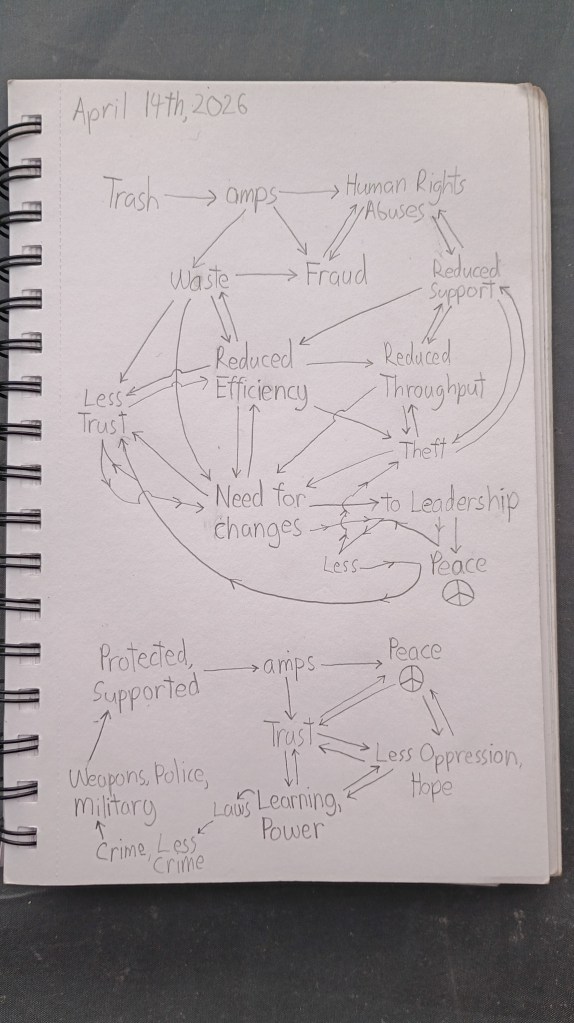 April 14th, 2026
Trash amps Human Rights
Abuses
Waste Fraud Reduced
Support
Reduced Reduced
Efficiency Throughput
Less
Trust
Theft
Need for to Leadership
changes
Less Peace
Protected, amps Peace
Supported
Trust
Less Oppression,
Hope
Weapons, Police,
Military
Laws Learning,
Power
Crime, Less
Crime